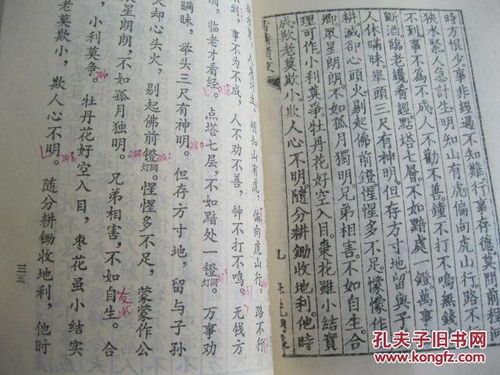 時方恨少事非經過不知難行事存德莫問前程
狹水緊人急計生明知山有虎偏向虎山行路不
不到事不為不成人不勸不善鐘不打不鳴無錢
斷酒臨老纔看經點塔七層不如暗處一鐙萬事
人休瞞昧舉頭三尺有神明但存方寸地留與子
耕滅却心頭火剔起佛前鐙惺惺多不足懞懞作
眾星朗朗不如孤月獨明兄弟相害不如自生合
理可作小利莫爭牡丹花好空入目棗花雖小結實
成欺老莫欺小欺人心不明隨分耕鋤收地利他時
明知山有虎，偏向虎山行。路不行
事不为不成，人不劝不善，钟不打不鸣。无钱方
临老才看经。点塔七层，不如黯处一镫。万事劝
瞒昧，举头三尺有神明。但存方寸地，留与子孙
灭却心头火，剔起佛前镫。惺惺多不足，蒙蒙作公
星朗朗，不如孤月独明。兄弟相害，不如自生。合
小利莫争。牡丹花好空入目，枣花虽小结实
莫欺小，欺人心不明。随分耕锄收地利，他时
三五
孔夫子旧书网
www.kongfz.com